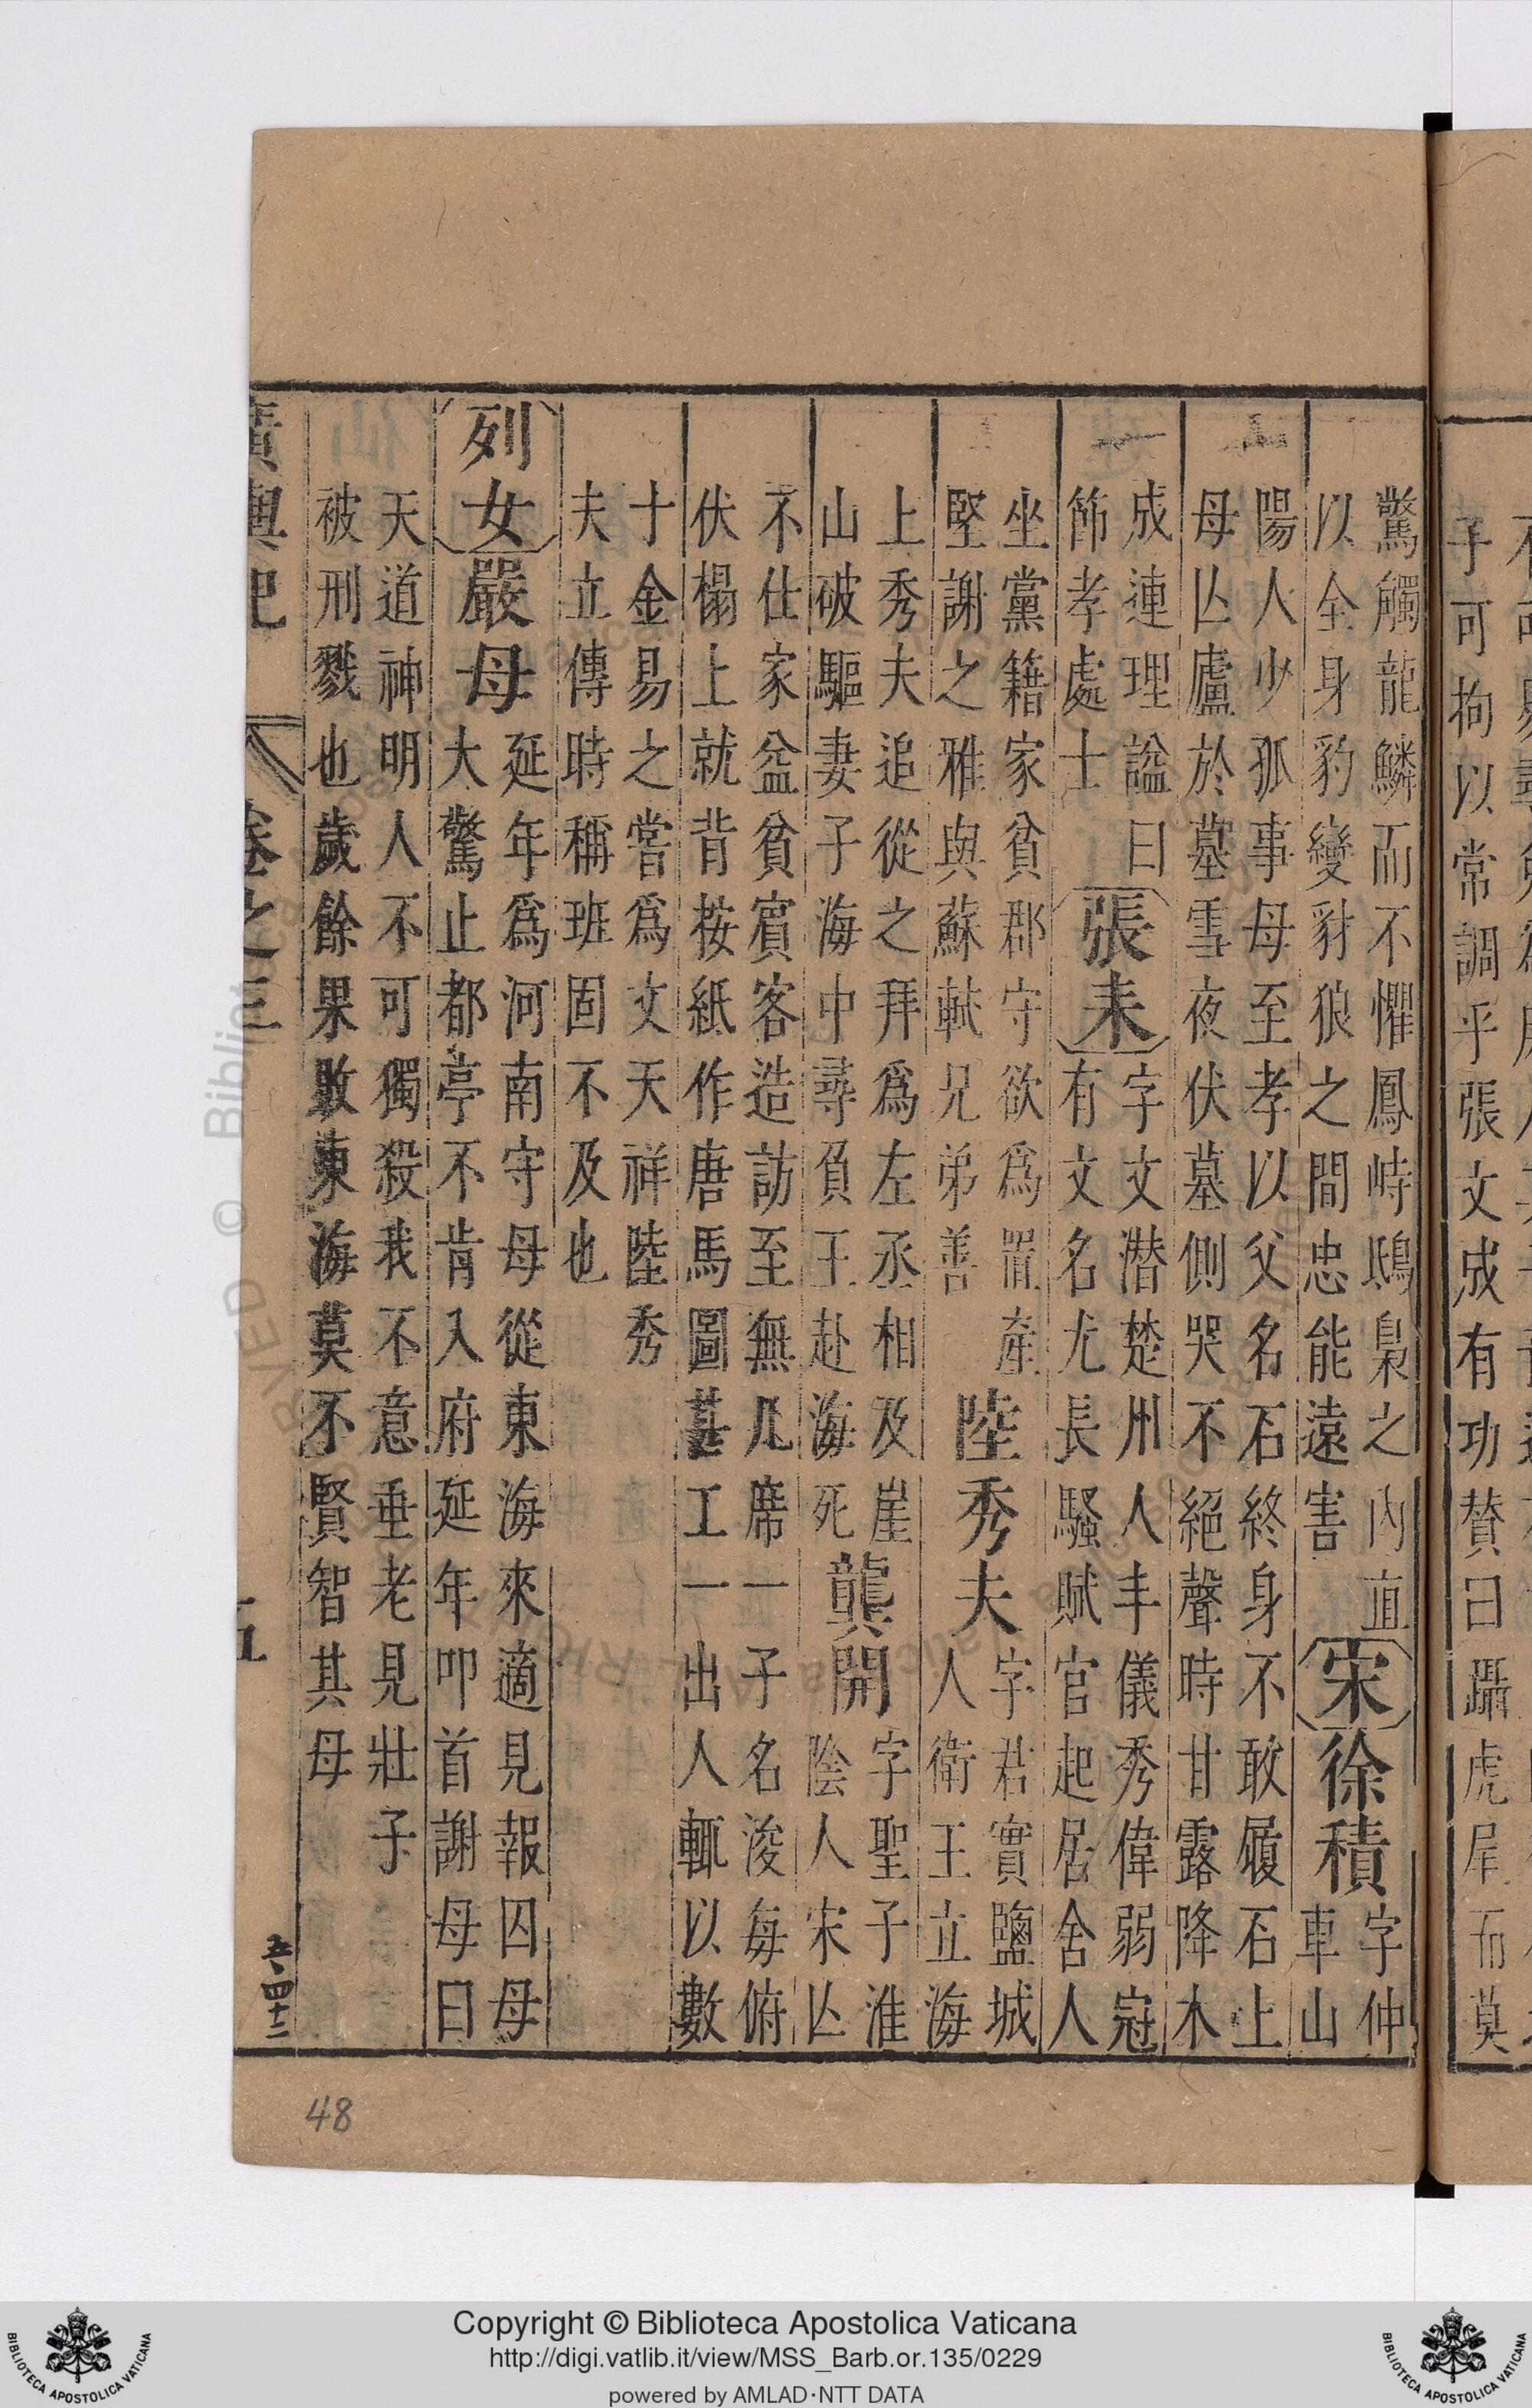 子可拘以常調乎張文成有功賛曰躡虎尾而莫
驚觸龍鱗而不懼鳳峙鴟梟之內直
以全身豹變豺狼之間忠能遠害
宋
徐積
字仲
車山
陽人少孤事母至孝以父名石終身不敢履石上
母亾廬於墓雪夜伏墓側哭不絕聲時甘露降木
成連理諡曰
節孝處士
張耒
字文潜楚州人丰儀秀偉弱冠
有文名尤長騷賦官起居舍人
坐黨籍家貧郡守欲爲置產
堅謝之雅與蘇軾兄弟善
陸秀夫
字君實鹽城
人衛王立海
上秀夫追從之拜爲左丞相及崖
山破驅妻子海中尋負王赴海死
龔開
字聖子淮
陰人宋亾
不仕家益貧賔客造訪至無几席一子名浚每俯
伏榻上就背按紙作唐馬圖甚工一出人輒以數
十金易之嘗爲文天祥陸秀
夫立傳時稱班固不及也
列女
嚴母
延年爲河南守母從東海來適見報囚母
大驚止都亭不肯入府延年叩首謝母曰
天道神明人不可獨殺我不意垂老見壯子
被刑戮也歲餘果敗東海莫不賢智其母
廣輿記 卷之三 五
五四十二
48
Copyright © Biblioteca Apostolica Vaticana
http://digi.vatlib.it/view/MSS_Barb.or.135/0229
powered by AMLAD·NTT DATA
BIBLIOTECA APOSTOLICA VATICANA
BIBLIOTECA APOSTOLICA VATICANA